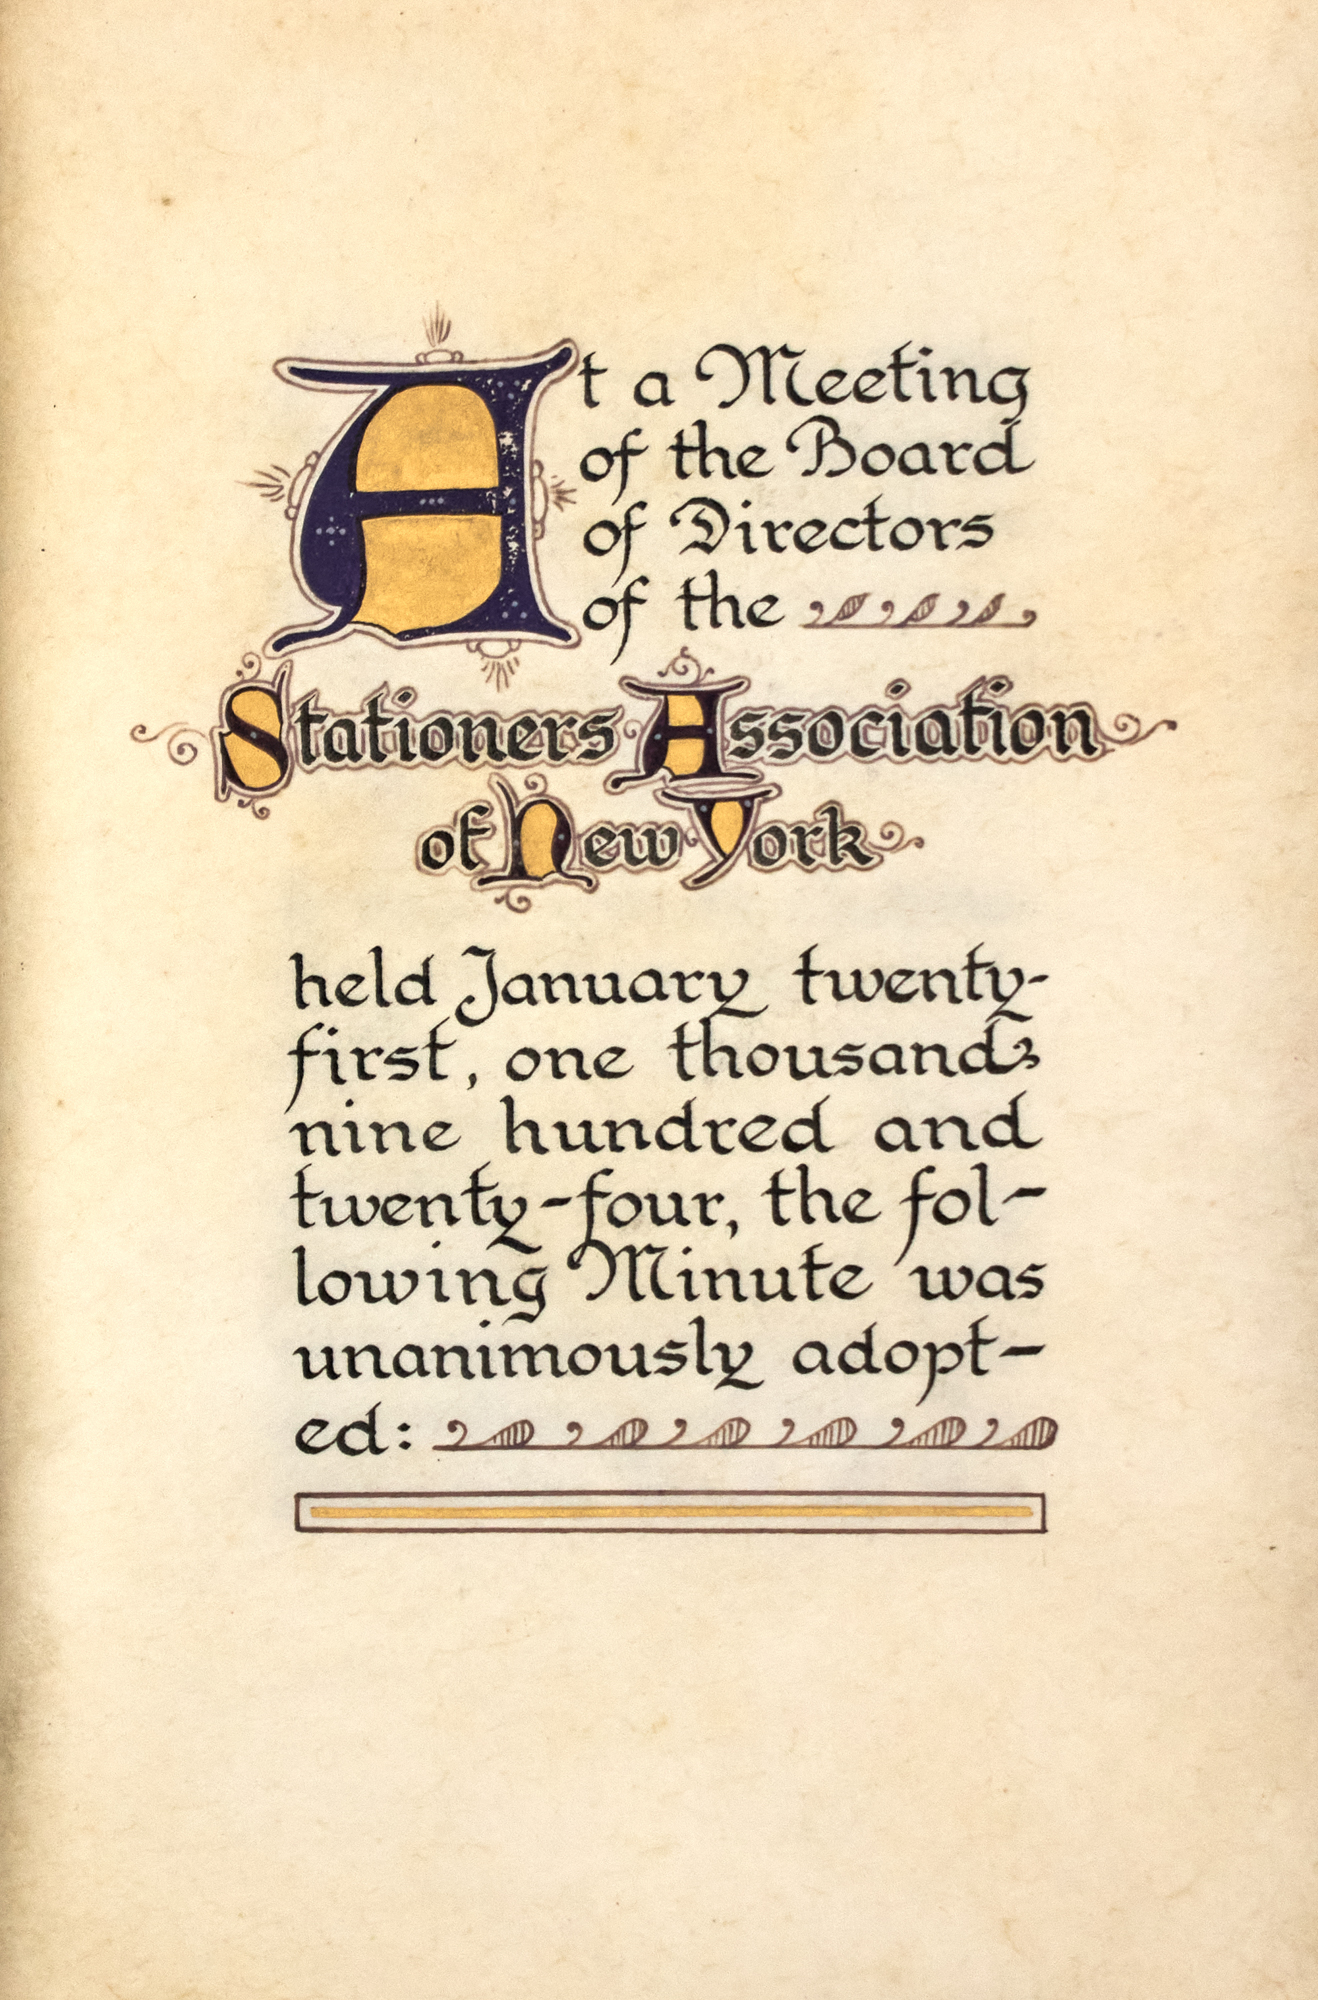 At a Meeting
of the Board
of Directors
of the
Stationers Association
of New York
held January twenty-
first, one thousand
nine hundred and
twenty-four, the fol-
lowing Minute was
unanimously adopt-
ed: